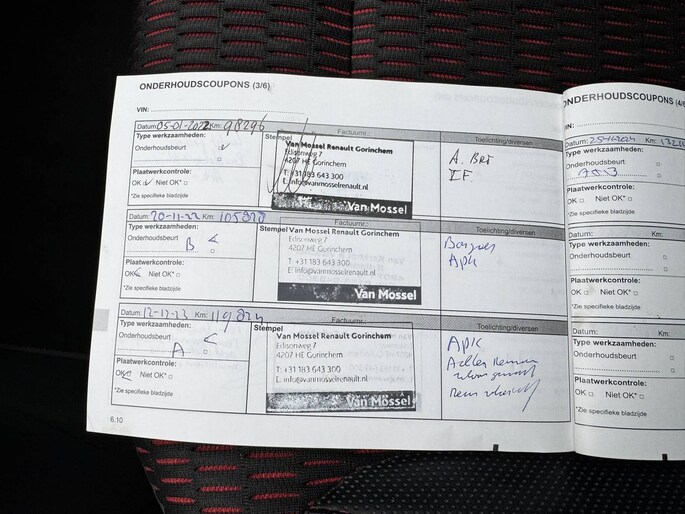 ONDERHOUDSCOUPONS (3/6)
VIN:
Datum: 05-01-2022 Km: 98296 Factuurnr.:
Type werkzaamheden: Stempel Toelichting/diversen
Onderhoudsbeurt
Plaatwerkcontrole:
OK Niet OK*
*Zie specifieke bladzijde
Van Mossel Renault Gorinchem
Edisonweg 7
4207 HE Gorinchem
T: +31 183 643 300
E: info@vanmosselrenault.nl
Van Mossel
A. Brt
I.F.
Datum: 20-11-22 Km: Factuurnr.:
Type werkzaamheden: Stempel Toelichting/diversen
Onderhoudsbeurt
B
Plaatwerkcontrole:
OK Niet OK*
*Zie specifieke bladzijde
Van Mossel Renault Gorinchem
Edisonweg 7
4207 HE Gorinchem
T: +31 183 643 300
E: info@vanmosselrenault.nl
Van Mossel
APK
Datum: 12-12-23 Km: Factuurnr.:
Type werkzaamheden: Stempel Toelichting/diversen
Onderhoudsbeurt
A
Plaatwerkcontrole:
OK Niet OK*
*Zie specifieke bladzijde
Van Mossel Renault Gorinchem
Edisonweg 7
4207 HE Gorinchem
T: +31 183 643 300
E: info@vanmosselrenault.nl
Van Mossel
APK
6.10
ONDERHOUDSCOUPONS (4/6
VIN:
Datum: 25-11-2024 Km:
Type werkzaamheden:
Onderhoudsbeurt
Plaatwerkcontrole:
OK Niet OK*
*Zie specifieke bladzijde
Datum: Km:
Type werkzaamheden:
Onderhoudsbeurt
Plaatwerkcontrole:
OK Niet OK*
*Zie specifieke bladzijde
Datum: Km:
Type werkzaamheden:
Onderhoudsbeurt
Plaatwerkcontrole:
OK Niet OK*
*Zie specifieke bladzijde